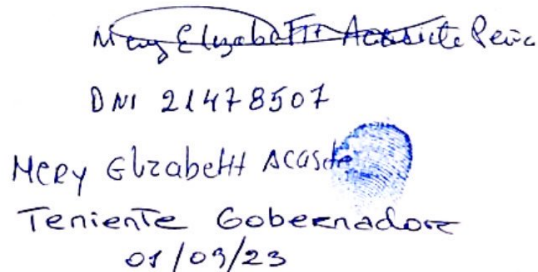 Mery Elizabeth Acasiete Peña
DNI 21478507
MERY Elizabeth Acasiete
Teniente Gobernadora
01/09/23